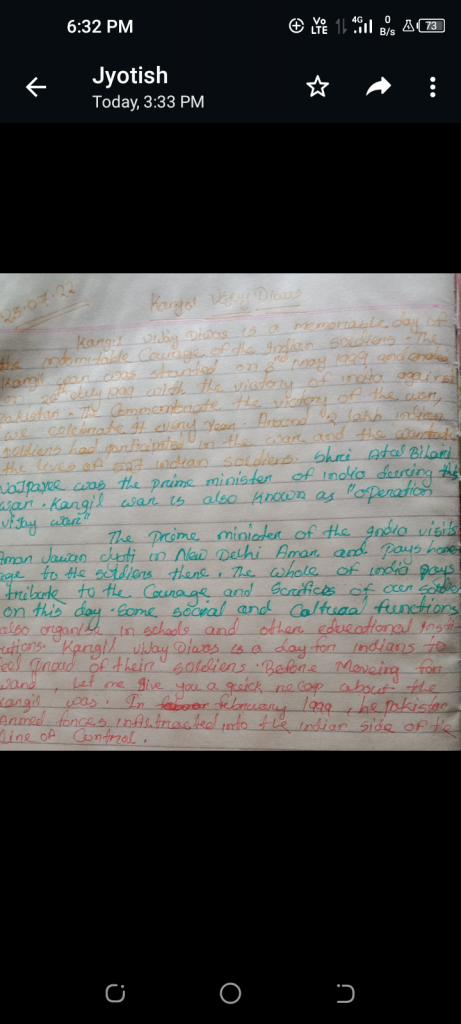 6:32 PM
Vo LTE 4G 0 B/s 73
Jyotish
Today, 3:33 PM
25.07.22
Kargil Vijay Diwas
Kangil viday Diwas is a memoriable day of
the indomitable Courage of the Indian Soldiers. The
Kangil war was started on 8 nd may 1999 and
on 26 July 1999 with the viatory of india against
Pakistan. The Commemorate the victory of the war,
we celebrate it every year. Around 2 lakh indian
soldiers had participated in the war and the
the lives of indian soldiers. Shri Atal Bihari
Vajpayee was the prime minister of india during this
war. Kangil war is also known as "operation
vijay war"
The Prime minister of the india visits
Aman Jawan Jyoti in New Delhi Aman and pays hom
age to the soldiers there. The whole of india pays
tribute to the Courage and Sacrifices of our soldie
on this day. Some social and Caltural functions
also organise in schools and other educational insti
utions. Kangil viJay Diwas is a day for indians to
eel proud of their soldiers. Before Moveing for
ward, Let me give you a quick recap about the
Kangil was. In february 1999, he pakistan
Armed forces infiltracted into the indian side of the
Line of Control.